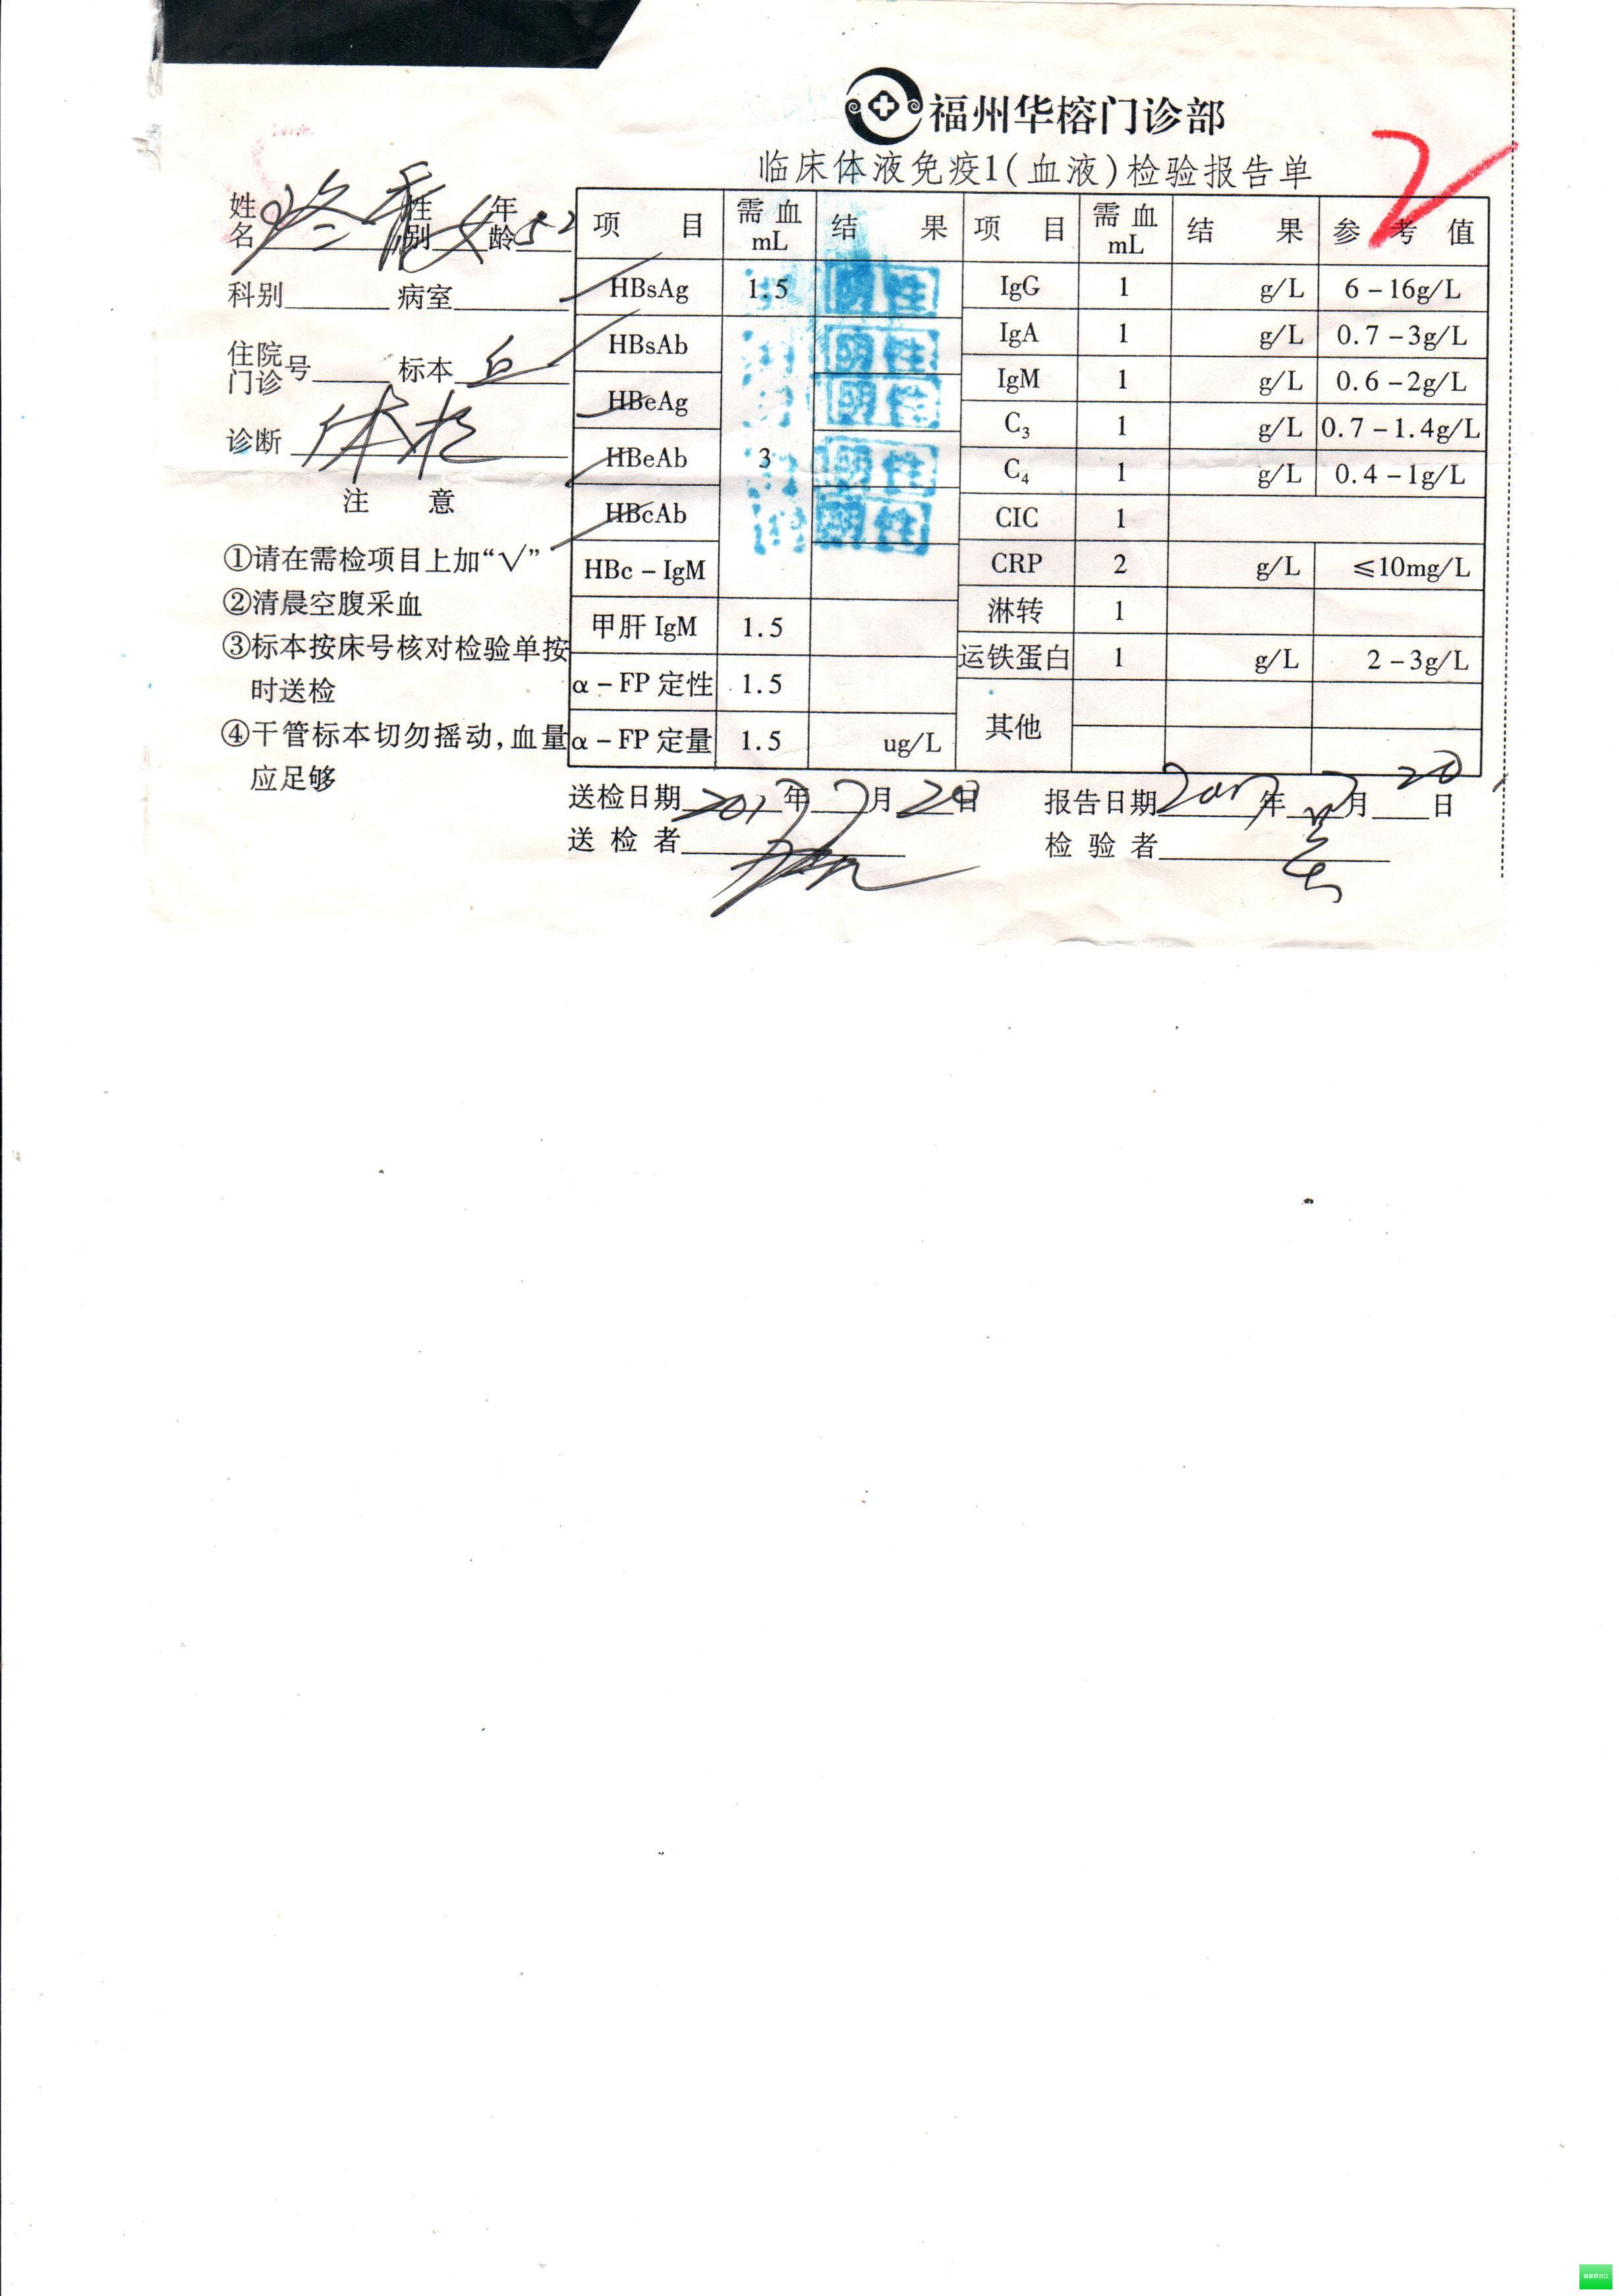 福州华榕门诊部
临床体液免疫1(血液)检验报告单
姓名 性别 女 年龄 52
科别 病室
住院门诊号 标本 血
诊断 体检
注 意
①请在需检项目上加“√”
②清晨空腹采血
③标本按床号核对检验单按
时送检
④干管标本切勿摇动,血量
应足够
项 目 需血mL 结 果 项 目 需血mL 结 果 参 考 值
HBsAg 1.5 阴性 IgG 1 g/L 6-16g/L
HBsAb 阴性 IgA 1 g/L 0.7-3g/L
HBeAg 阴性 IgM 1 g/L 0.6-2g/L
C3 1 g/L 0.7-1.4g/L
HBeAb 3 阴性 C4 1 g/L 0.4-1g/L
HBcAb 阴性 CIC 1
HBc-IgM CRP 2 g/L ≤10mg/L
甲肝IgM 1.5 淋转 1
运铁蛋白 1 g/L 2-3g/L
α-FP定性 1.5 其他
α-FP定量 1.5 ug/L
送检日期 2017年 7月 20日 报告日期 2017年 7月 20日
送 检 者 检 验 者